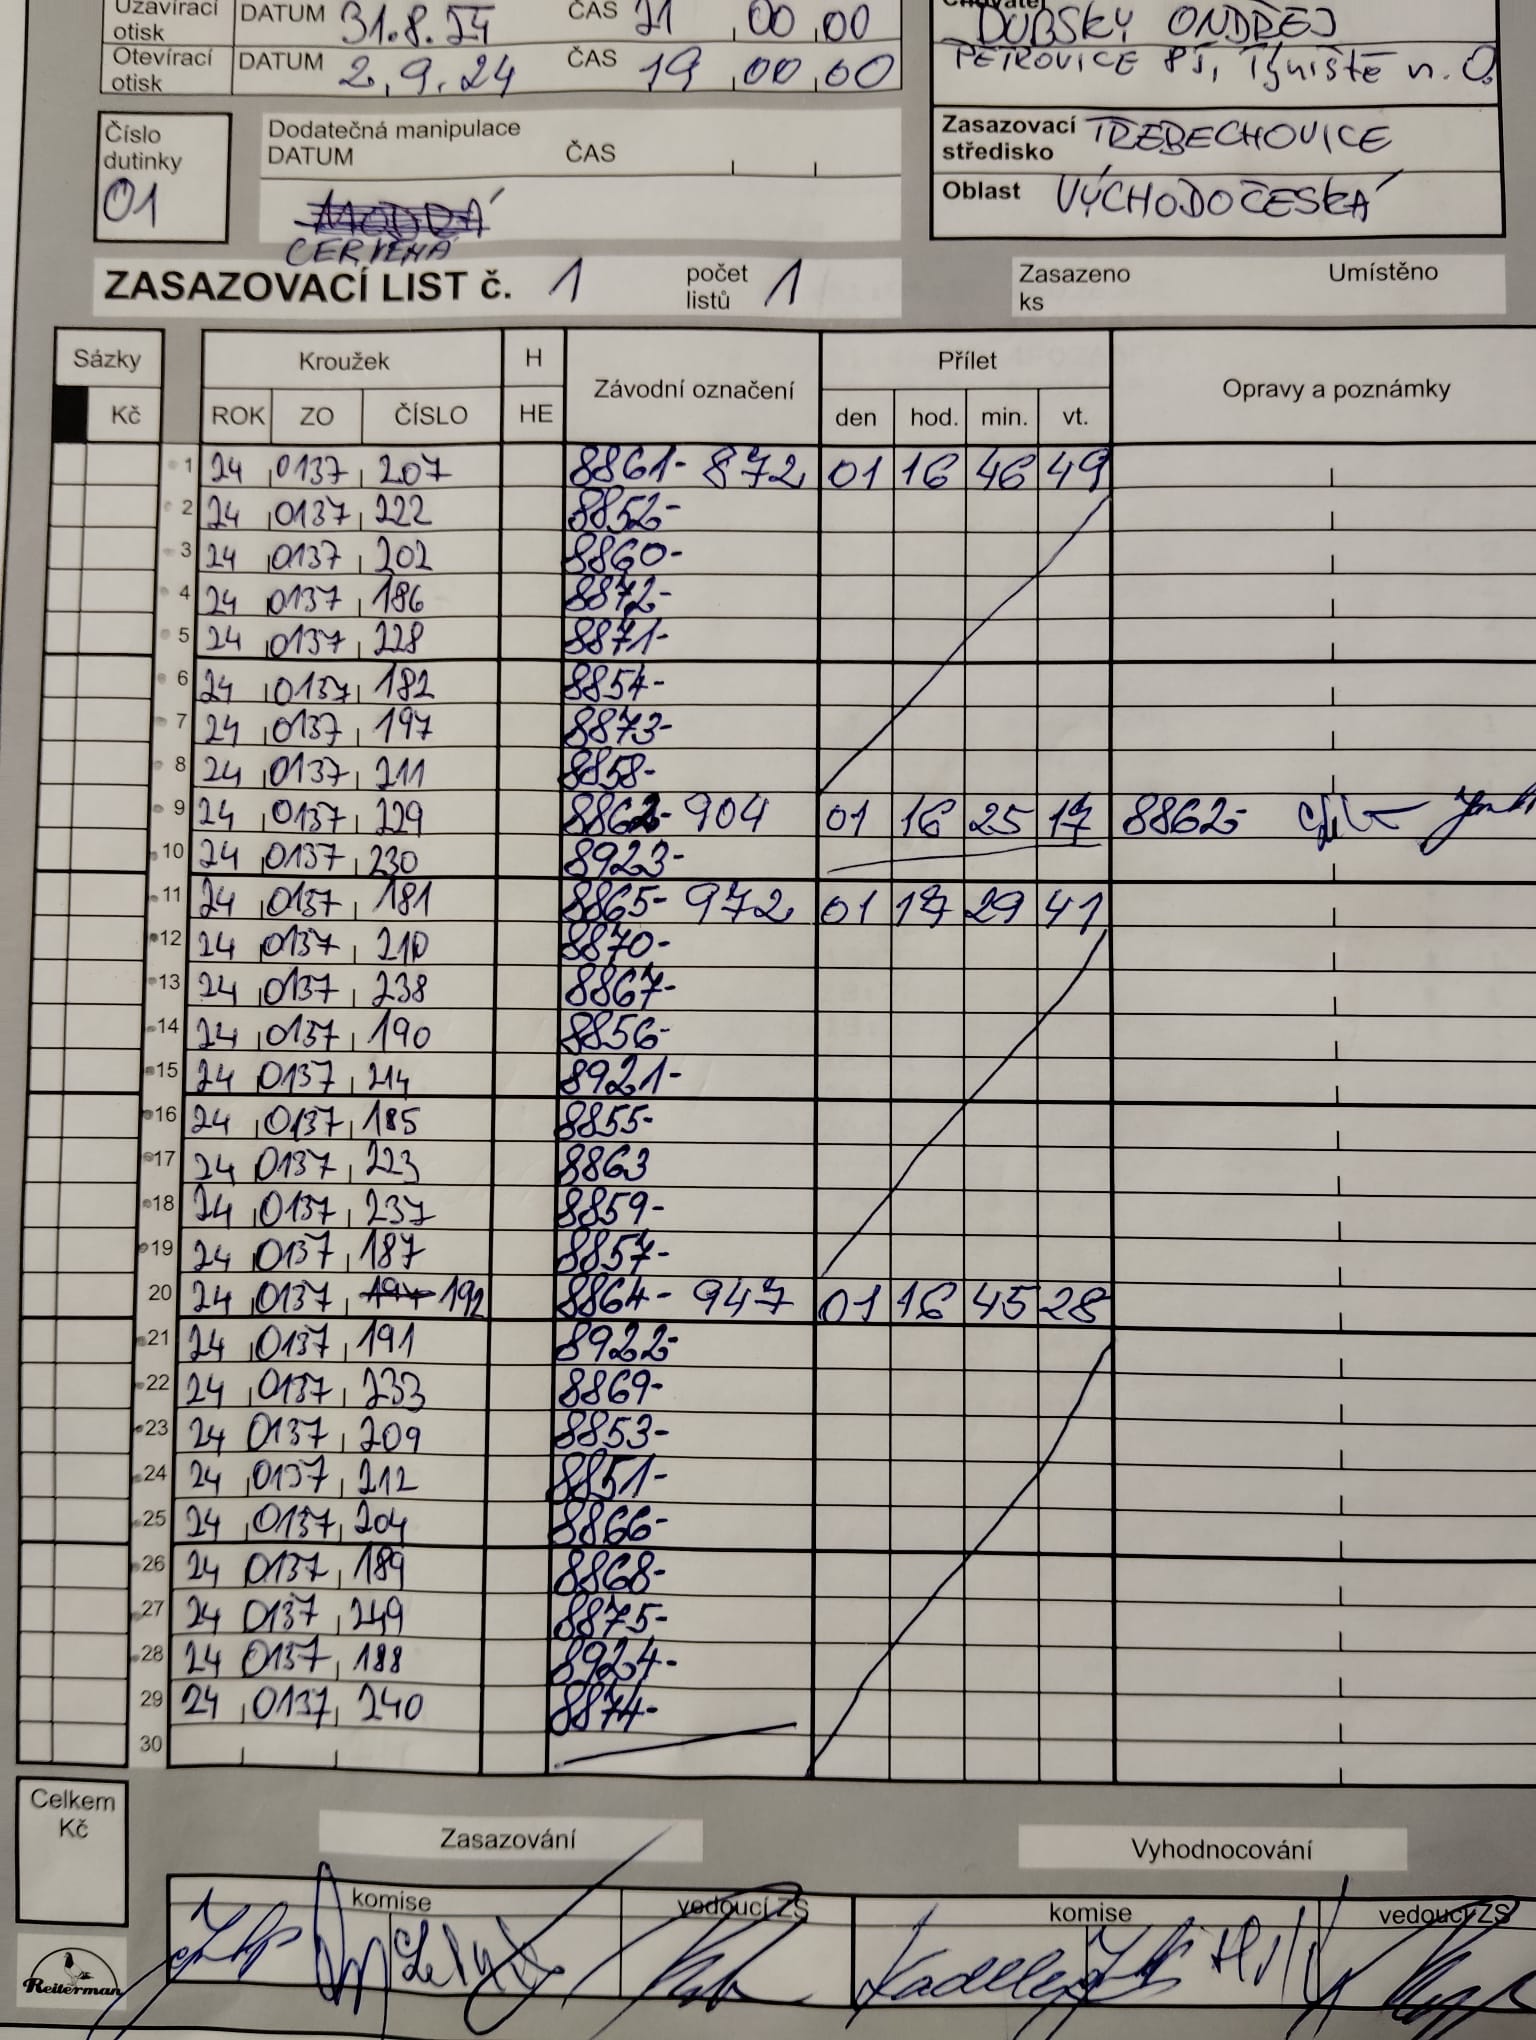 Uzavírací otisk DATUM 31.8.24 ČAS 21 00 00
Otevírací otisk DATUM 2.9.24 ČAS 19 00 00
DUBSKÝ ONDŘEJ
PETROVICE 85, Týniště n. O.
Číslo dutinky 01
Dodatečná manipulace
DATUM ČAS
Zasazovací středisko TŘEBECHOVICE
Oblast VÝCHODOČESKÁ
ČERVENÁ
ZASAZOVACÍ LIST č. 1 počet listů 1
Zasazeno ks Umístěno
Sázky Kroužek H Závodní označení Přílet Opravy a poznámky
Kč ROK ZO ČÍSLO HE den hod. min. vt.
1 24 0137 207 8861- 872 01 16 46 49
2 24 0137 222 8852-
3 24 0137 202 8860-
4 24 0137 186 8872-
5 24 0137 228 8871-
6 24 0137 182 8854-
7 24 0137 197 8873-
8 24 0137 211 8858-
9 24 0137 229 8862- 904 01 16 25 17 8862-
10 24 0137 230 8923-
11 24 0137 181 8865- 972 01 17 29 41
12 24 0137 210 8870-
13 24 0137 238 8867-
14 24 0137 190 8856-
15 24 0137 214 8921-
16 24 0137 185 8855-
17 24 0137 223 8863
18 24 0137 237 8859-
19 24 0137 187 8857-
20 24 0137 192 8864- 947 01 16 45 28
21 24 0137 191 8922-
22 24 0137 233 8869-
23 24 0137 209 8853-
24 24 0137 212 8851-
25 24 0137 204 8866-
26 24 0137 189 8868-
27 24 0137 249 8875-
28 24 0137 188 8924-
29 24 0137 240 8874-
30
Celkem Kč
Zasazování Vyhodnocování
komise vedoucí ZS komise vedoucí ZS
Reiterman